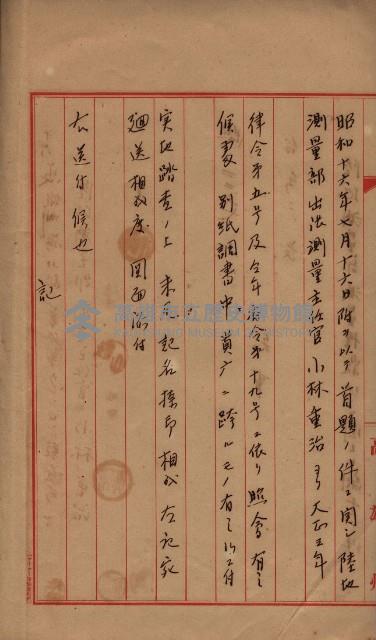 昭和十六年七月十六日附ヲ以テ首題ノ件ニ関シ陸地
測量部出張測量主任官小林重治ヨリ大正五年
律令第五号及仝年府令第十九号ニ依リ照会有之
候處別紙調書中貴庁ニ跨ルモノ有之ニ付
実地踏査ノ上未記名捺印相成左記宛
廻送相成度図面添付
右送付候也
記
高雄市立歷史博物館
KAOHSIUNG MUSEUM OF HISTORY
高雄州